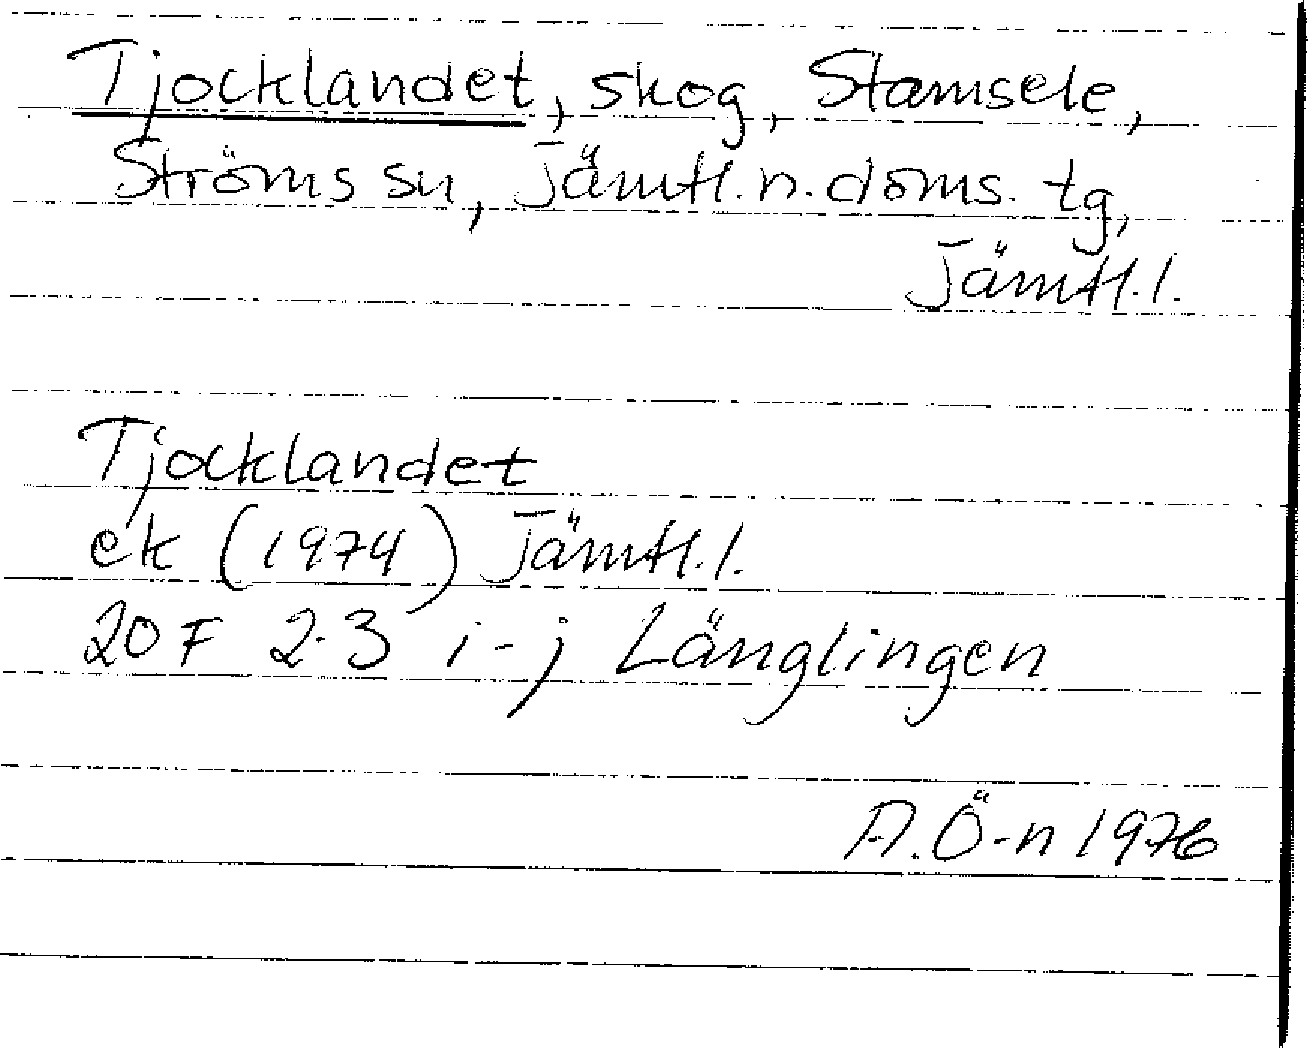 Tjocklandet, skog, Stamsele,
Ströms sn, Jämtl. n. doms. tg,
Jämtl. l.
Tjocklandet
ek (1974) Jämtl. l.
20 F 2-3 i-j Länglingen
A. Ö-n 1976